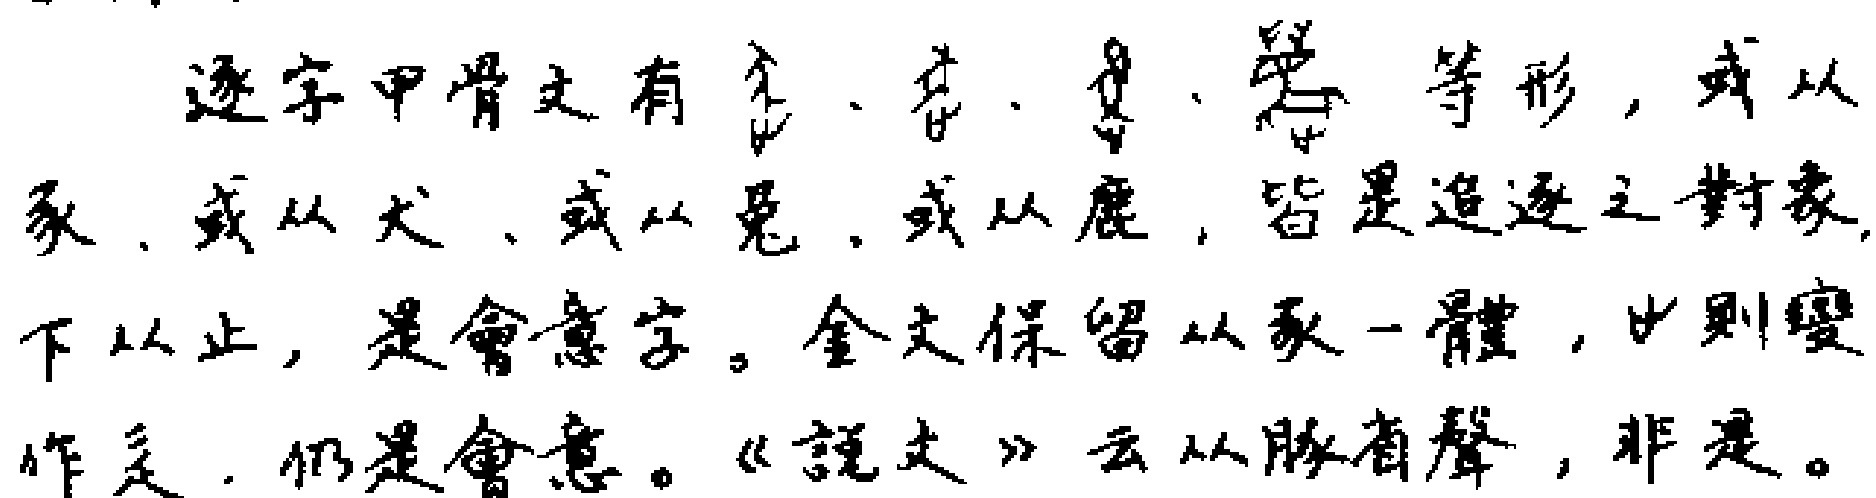 逐字甲骨文有、、、等形，或从
豕、或从犬、或从兔、或从鹿，皆是追逐之對象，
下从止，是會意字。金文保留从豕一體，則變
作辵，仍是會意。《說文》云从豚省聲，非是。